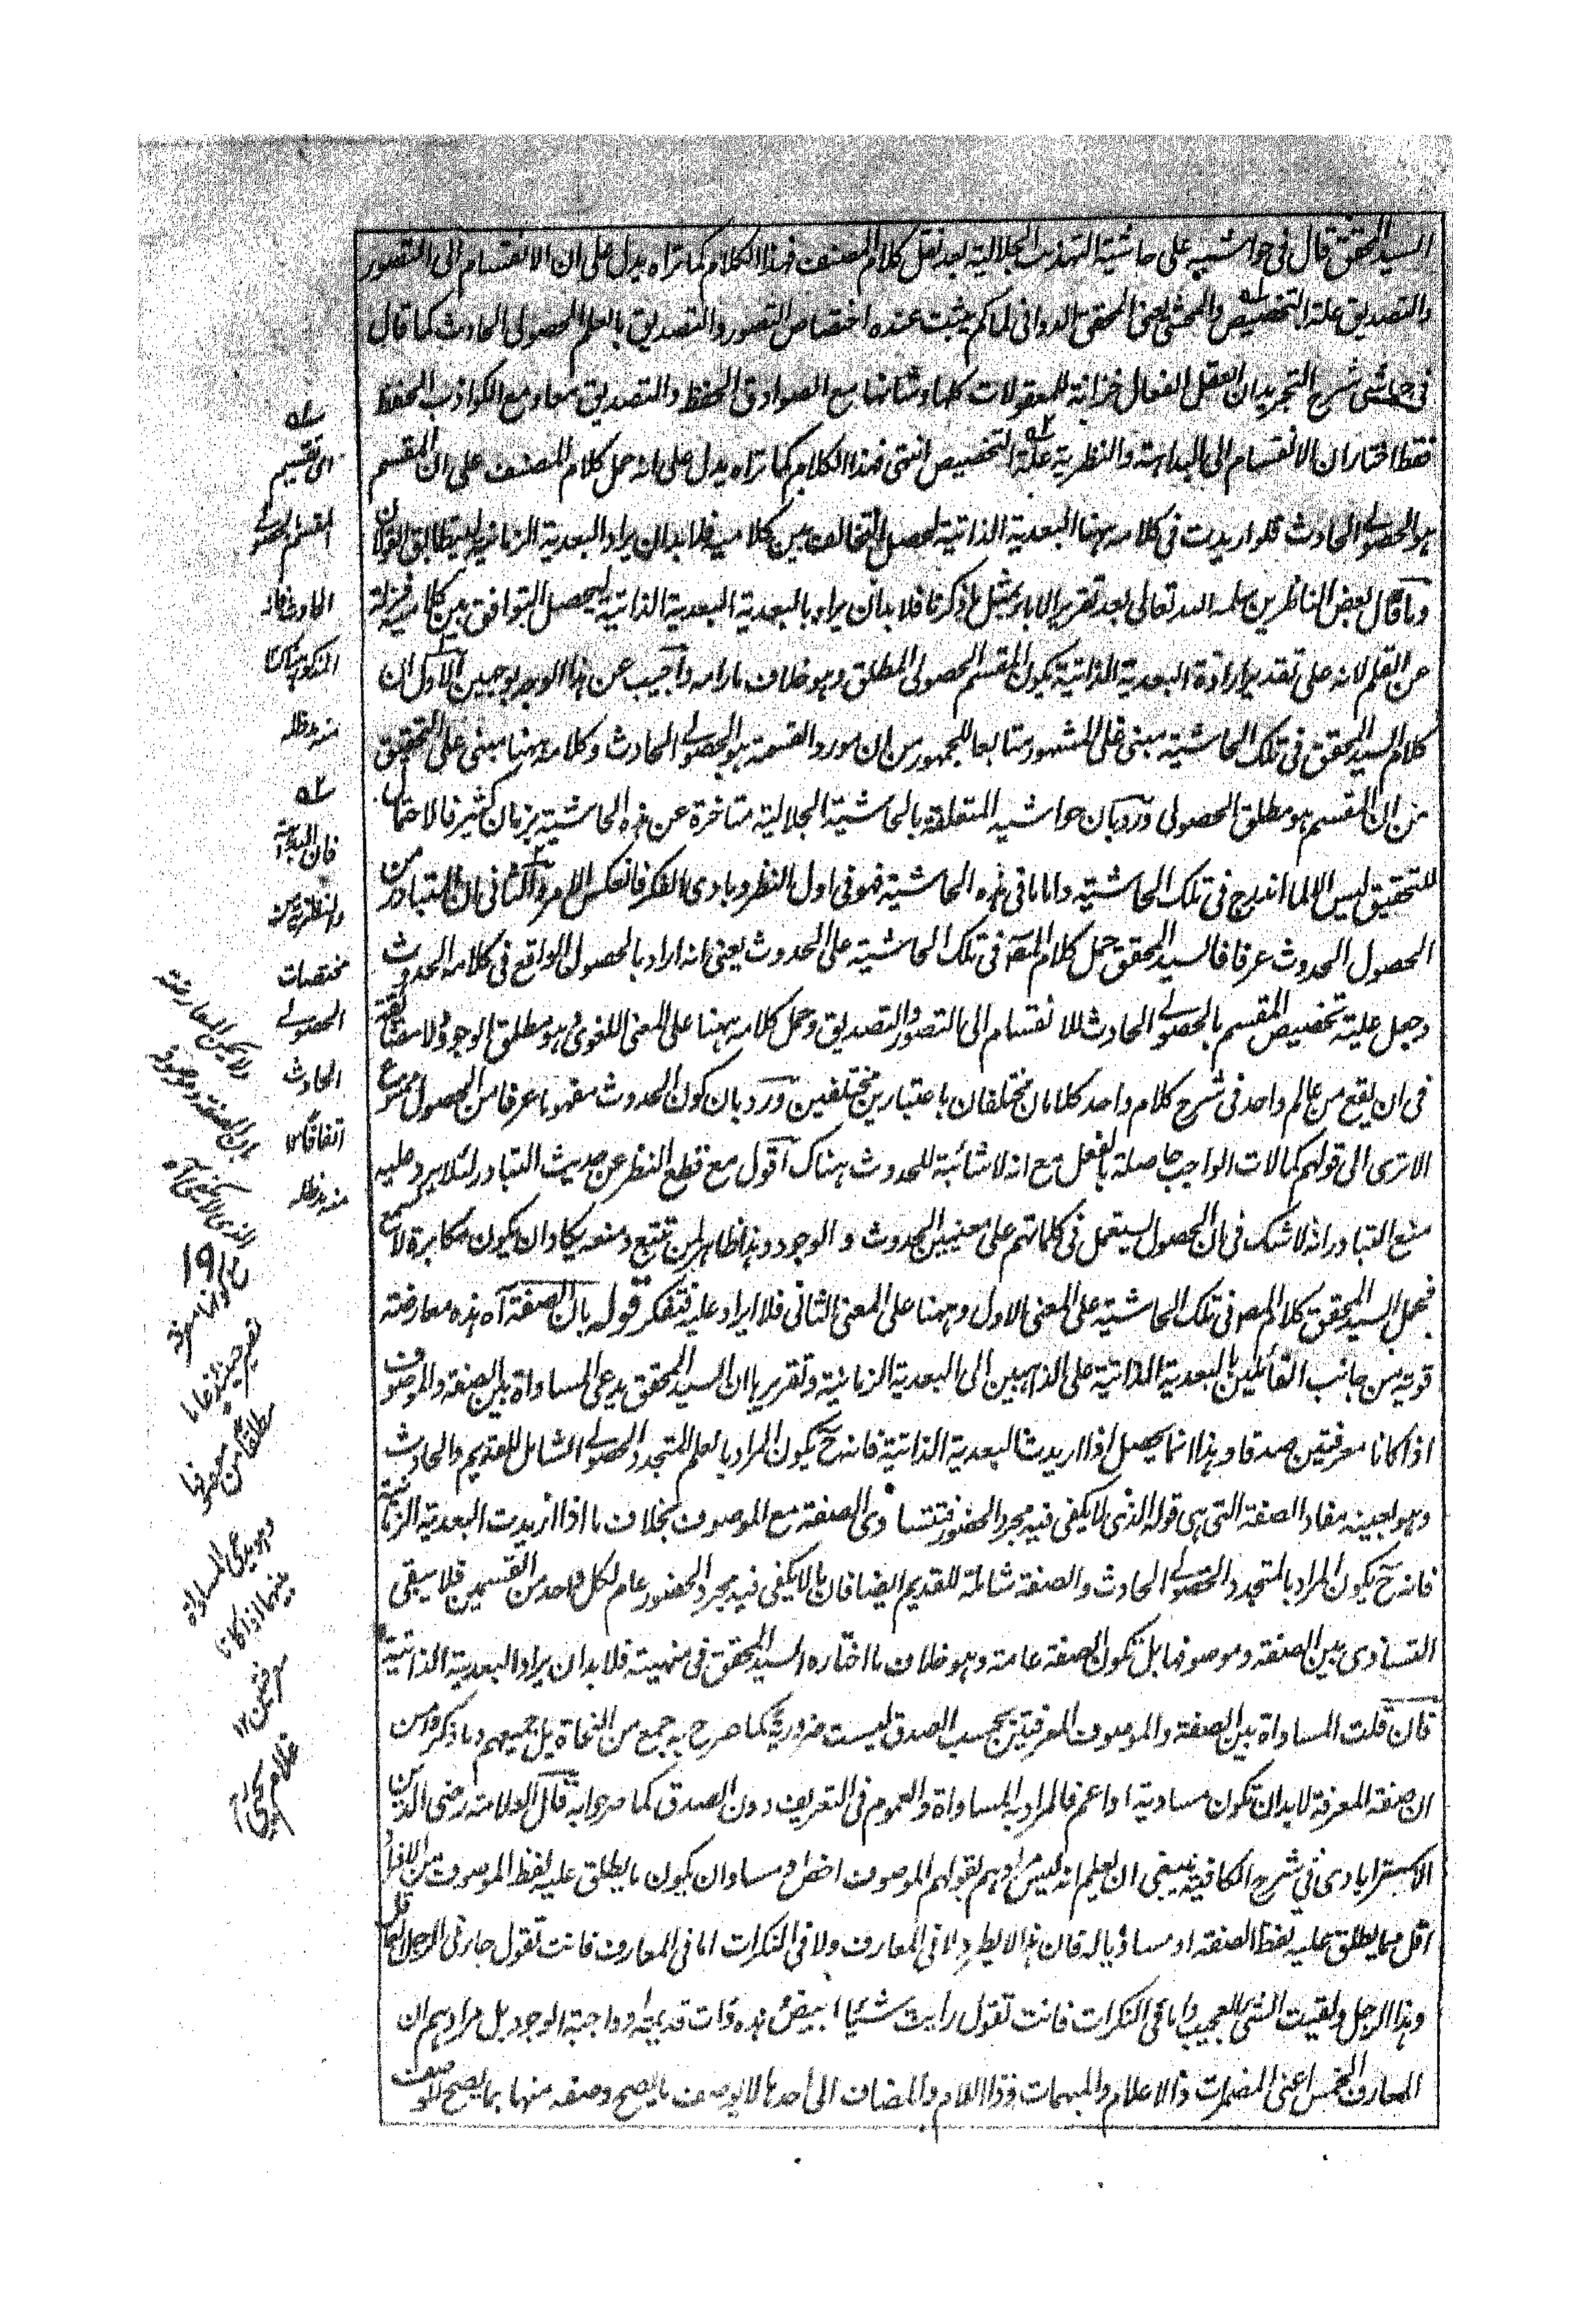 السيد المحقق قال في حواشيه على حاشية التهذيب الجلالية بعد نقل كلام المصنف فهذا الكلام كما تراه يدل على ان الانقسام الى التصور
والتصديق علة التخصيص والمحشي اعني المحقق الدواني لما لم يثبت عنده اختصاص التصور والتصديق بالعلم الحصولي الحادث كما قال
في حواشي شرح التجريد ان العقل الفعال خزانة للمعقولات كلها وشانها مع الصوادق الحفظ والتصديق معا ومع الكواذب الحفظ
فقط اختار ان الانقسام الى البداهة والنظرية علة التخصيص انتهى فهذا الكلام كما تراه يدل على انه حمل كلام المصنف على ان المقسم
هو الحصولي الحادث فلو اريدت في كلامه ههنا البعدية الذاتية لحصل التخالف بين كلاميه فلا بد ان يراد البعدية الزمانية ليتطابق القولان
وما قال بعض الناظرين سلمه الله تعالى بعد تقرير الايراد بمثل ما ذكرنا فلا بد ان يراد بالبعدية البعدية الذاتية ليحصل التوافق بين كلاميه فزلة
من القلم لانه على تقدير ارادة البعدية الذاتية يكون المقسم الحصولي المطلق وهو خلاف مارامه واجيب عن هذا الوجه بوجهين الاول ان
كلام السيد المحقق في تلك الحاشية مبني على المشهور متابعا للجمهور من ان مورد القسمة هو الحصولي الحادث وكلامه ههنا مبني على التحقيق
من ان المقسم هو مطلق الحصولي ورد بان حواشيه المتعلقة بالحاشية الجلالية متاخرة عن هذه الحاشية بزمان كثير فالاحتمال
للتحقيق ليس الا لما اندرج في تلك الحاشية واما ما في هذه الحاشية فهو في اول النظر وبادى الفكر فانعكس الامر والثاني ان المتبادر من
الحصول الحدوث عرفا فالسيد المحقق حمل كلام المصنف في تلك الحاشية على الحدوث يعني انه اراد بالحصول الواقع في كلامه الحدوث
وجعل علية تخصيص المقسم بالحصولي الحادث للانقسام الى التصور والتصديق وحمل كلامه ههنا على المعنى اللغوي وهو مطلق الوجود ولا مضائقة
في ان يقع من عالم واحد في شرح كلام واحد كلامان مختلفان باعتبارين مختلفين ورد بان كون الحدوث مفهوما عرفا من الحصول ممنوع
الا ترى الى قولهم كمالات الواجب حاصلة بالفعل مع انه لا شائبة للحدوث هناك اقول مع قطع النظر عن حديث التبادر لئلا يرد عليه
منع التبادر انه لا شك في ان الحصول يستعمل في كلماتهم على معنيين الحدوث و الوجود وهذا ظاهر لمن تتبع ومنعه يكاد ان يكون مكابرة لا تسمع
فحمل السيد المحقق كلام المصنف في تلك الحاشية على المعنى الاول وههنا على المعنى الثاني فلا ايراد عليه فتفكر قوله بان الصفة آه هذه معارضة
قوية من جانب القائلين بالبعدية الذاتية على الذاهبين الى البعدية الزمانية وتقريرها ان السيد المحقق يدعي المساواة بين الصفة والموصوف
اذا كانا معرفتين صدقا وهذا انما يحصل اذا اريدت البعدية الذاتية فانه ح يكون المراد بالعلم المتجدد الحصولي الشامل للقديم والحادث
وهو بعينه مفاد الصفة التي هي قوله الذي لا يكفي فيه مجرد الحضور فتتساوى الصفة مع الموصوف بخلاف ما اذا اريدت البعدية الزمانية
فانه ح يكون المراد بالمتجدد الحصولي الحادث والصفة شاملة للقديم ايضا فان ما لا يكفي فيه مجرد الحضور عام لكل واحد من القسمين فلا يبقى
التساوي بين الصفة وموصوفها بل تكون الصفة عامة وهو خلاف ما اختاره السيد المحقق في منهيته فلا بد ان يراد البعدية الذاتية
فان قلت المساواة بين الصفة والموصوف المعرفتين بحسب الصدق ليست ضرورية كما صرح به جمع من النحاة بل جميعهم وما ذكروا من
ان صفة المعرفة لا بد ان تكون مساوية او اعم فالمراد به المساواة والعموم في التعريف دون الصدق كما صرحوا به قال العلامة رضي الدين
الاسترابادي في شرح الكافية ينبغي ان يعلم انه ليس مرادهم بقولهم الموصوف اخص او مساو ان يكون ما يطلق عليه لفظ الموصوف من الافراد
اقل مما يطلق عليه لفظ الصفة او مساويا له فان هذا لا يطرد لا في المعارف ولا في النكرات اما في المعارف فانت تقول جاءني الرجل العاقل
وهذا الرجل ولقيت الشيء العجيب واما في النكرات فانت تقول رايت شيئا ابيض هذه ذات قديمة او واجبة الوجود بل مرادهم ان
المعارف الخمس اعني المضمرات والاعلام والمبهمات وذا اللام والمضاف الى احدها لا يوصف ما يصح وصفه منها بما يصح الوصف
اى تقسيم
المقسم الحصولي
الحادث
منه مد ظله
فان البداهة
والنظرية من
مختصات
الحصولي
الحادث
اتفاقا
منه مد ظله
مطلقا من موصوفها
وهو يدعي المساواة
بينهما اذا كانا
معرفتين ١٢
غلام يحيى